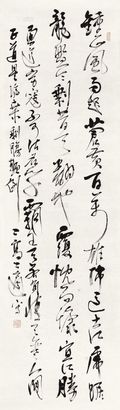 鍾山風雨起蒼黃百萬雄師過大江虎踞
龍盤今剩昔天翻地覆慨而慷宜將勝
勇追窮寇不可沽名學霸王天若有情天亦老人間
正道是滄桑 剩勝顛倒